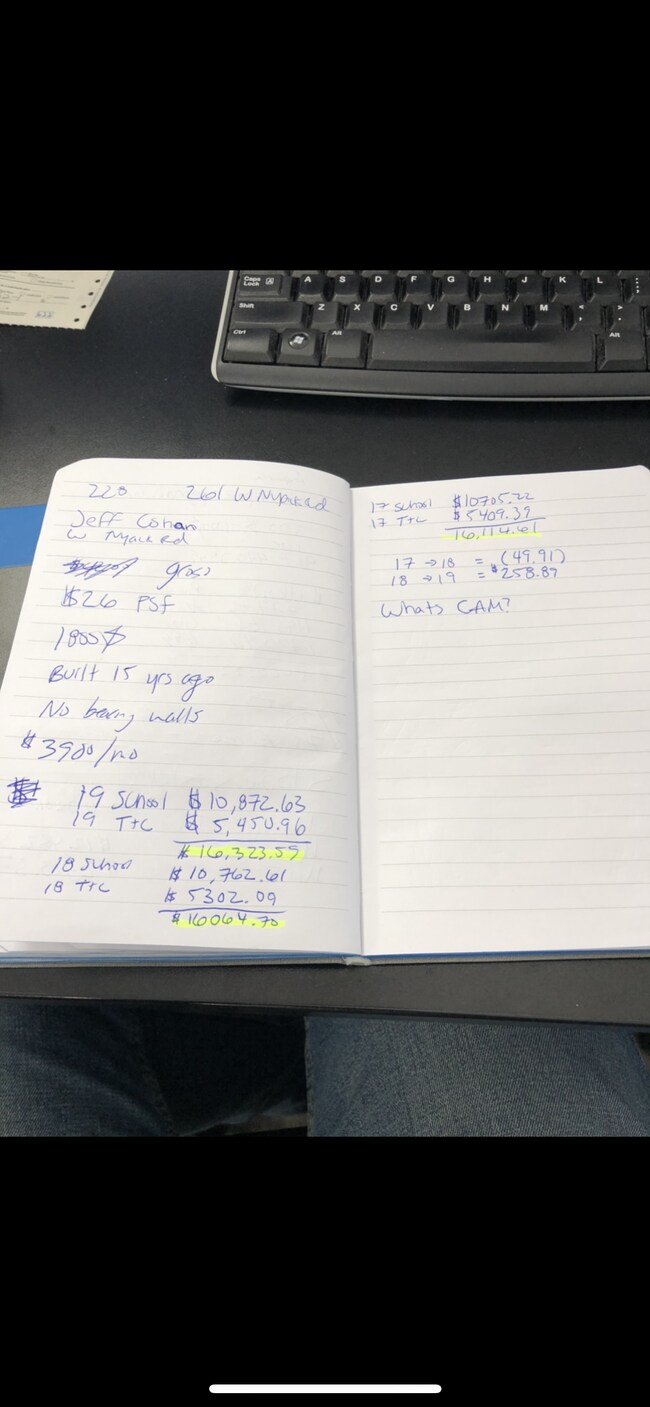 Caps Lock A A S D F G H J K L
Shift Z X C V B N M < , > .
Ctrl Alt Alt
228 261 W Nyack Rd
Jeff Cohan
W Nyack Rd
gross
$26 PSF
1800
Built 15 yrs ago
No bearing walls
$3900/mo
19 School $10,872.63
19 T+C $5,450.96
$16,323.59
18 School $10,762.61
18 T+C $5302.09
$16064.70
17 School $10705.22
17 T+C $5409.39
16,114.61
17 → 18 = (49.91)
18 → 19 = $258.89
Whats CAM?